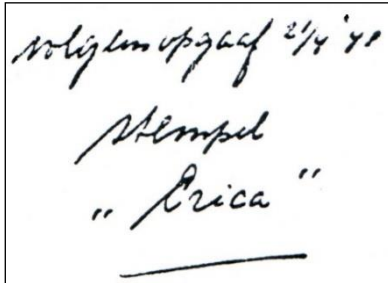 volgens opgaaf 21/4 '48
stempel
„ Erica "